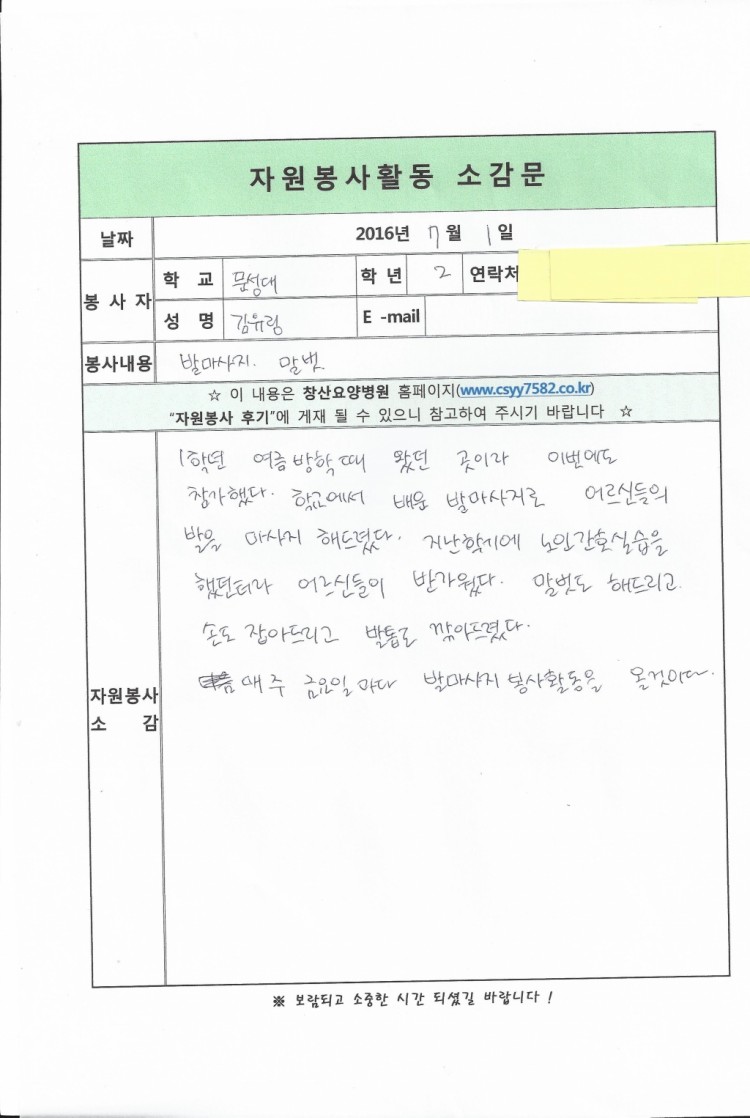 자원봉사활동 소감문
날짜 2016년 7월 1일
봉사자 학교 문성대 학년 2 연락처
성명 김유림 E-mail
봉사내용 발마사지. 말벗
☆ 이 내용은 창산요양병원 홈페이지(www.csyy7582.co.kr)
"자원봉사 후기"에 게재 될 수 있으니 참고하여 주시기 바랍니다 ☆
자원봉사 소감
1학년 여름방학때 왔던 곳이라 이번에도
참가했다. 학교에서 배운 발마사지로 어르신들의
발을 마사지 해드렸다. 지난학기에 노인간호실습을
했던터라 어르신들이 반가웠다. 말벗도 해드리고.
손도 잡아드리고 발톱도 깎아드렸다.
매주 금요일마다 발마사지 봉사활동을 올것이다.
※ 보람되고 소중한 시간 되셨길 바랍니다 !